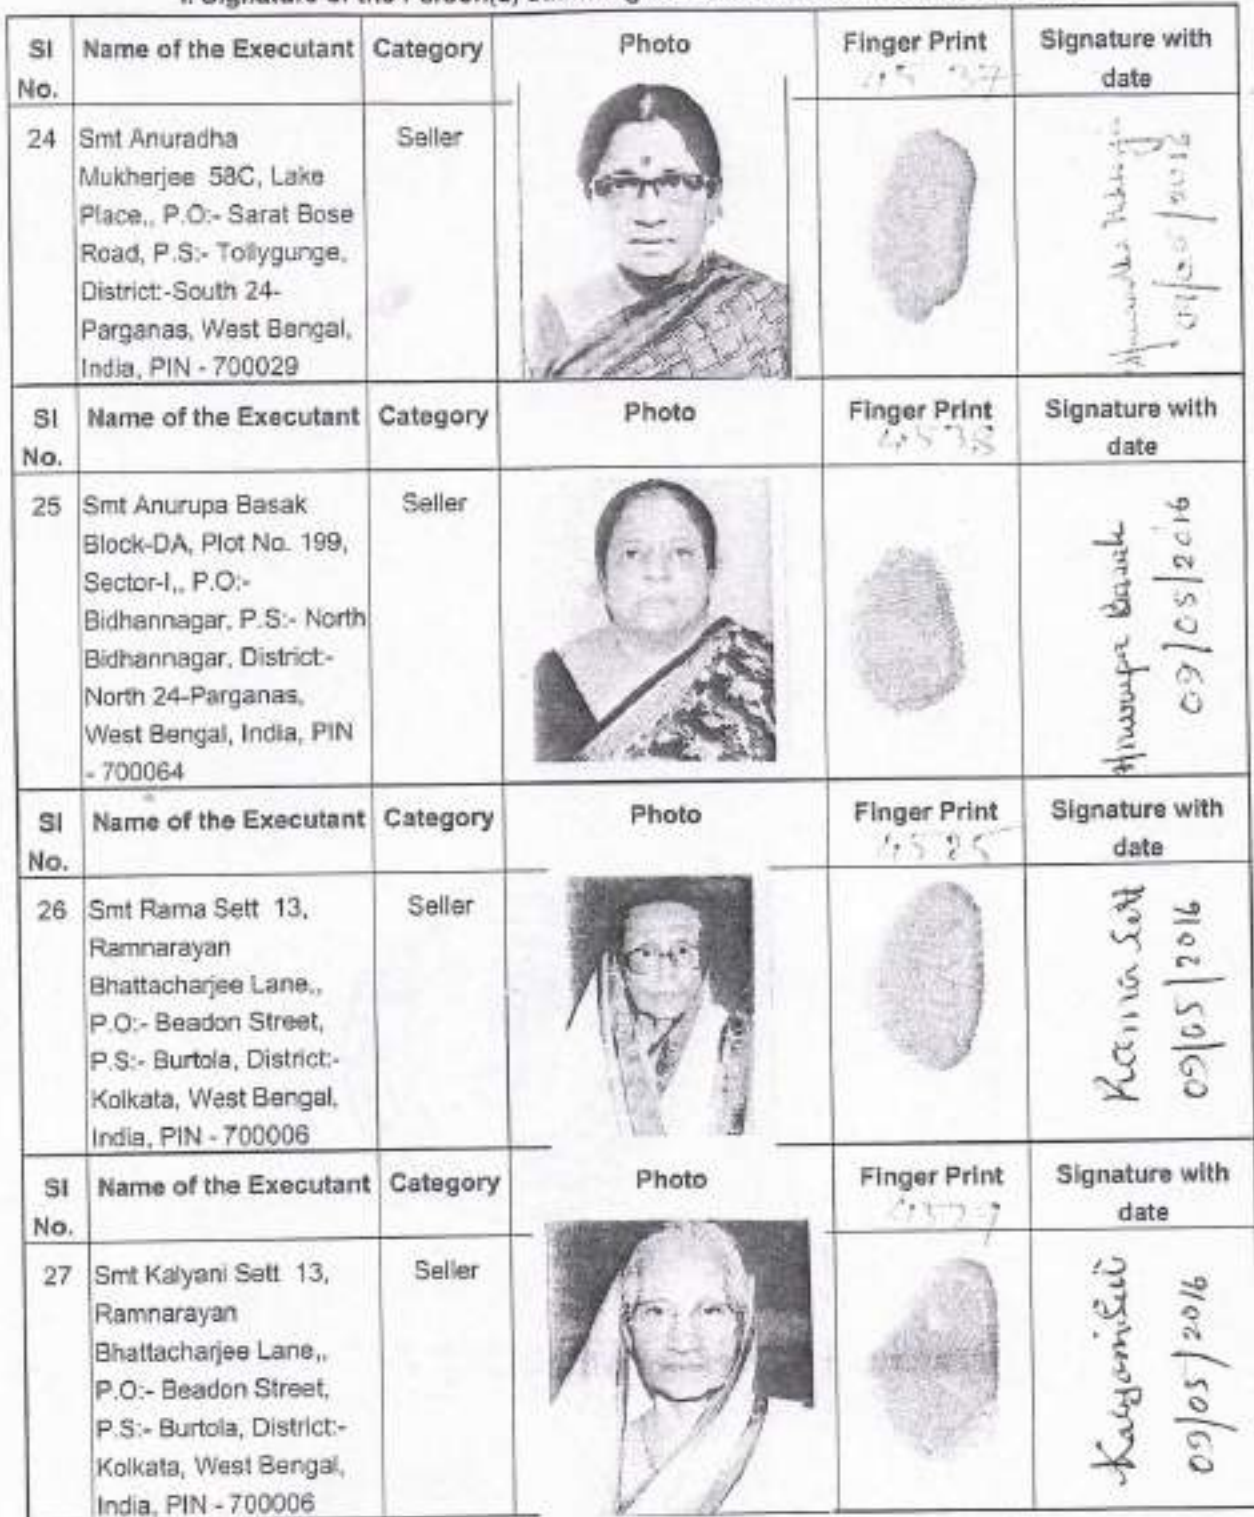 I. Signature of the Person(s)
Sl No. Name of the Executant Category Photo Finger Print Signature with date
4537
24 Smt Anuradha Seller
Mukherjee 58C, Lake
Place,, P.O:- Sarat Bose
Road, P.S:- Tollygunge,
District:-South 24-
Parganas, West Bengal,
India, PIN - 700029
09/05/2016
Sl No. Name of the Executant Category Photo Finger Print Signature with date
4538
25 Smt Anurupa Basak Seller
Block-DA, Plot No. 199,
Sector-I,, P.O:-
Bidhannagar, P.S:- North
Bidhannagar, District:-
North 24-Parganas,
West Bengal, India, PIN
- 700064
Anurupa Basak
09/05/2016
Sl No. Name of the Executant Category Photo Finger Print Signature with date
26 Smt Rama Sett 13, Seller
Ramnarayan
Bhattacharjee Lane,,
P.O:- Beadon Street,
P.S:- Burtola, District:-
Kolkata, West Bengal,
India, PIN - 700006
Rama Sett
09/05/2016
Sl No. Name of the Executant Category Photo Finger Print Signature with date
27 Smt Kalyani Sett 13, Seller
Ramnarayan
Bhattacharjee Lane,,
P.O:- Beadon Street,
P.S:- Burtola, District:-
Kolkata, West Bengal,
India, PIN - 700006
Kalyani Sett
09/05/2016